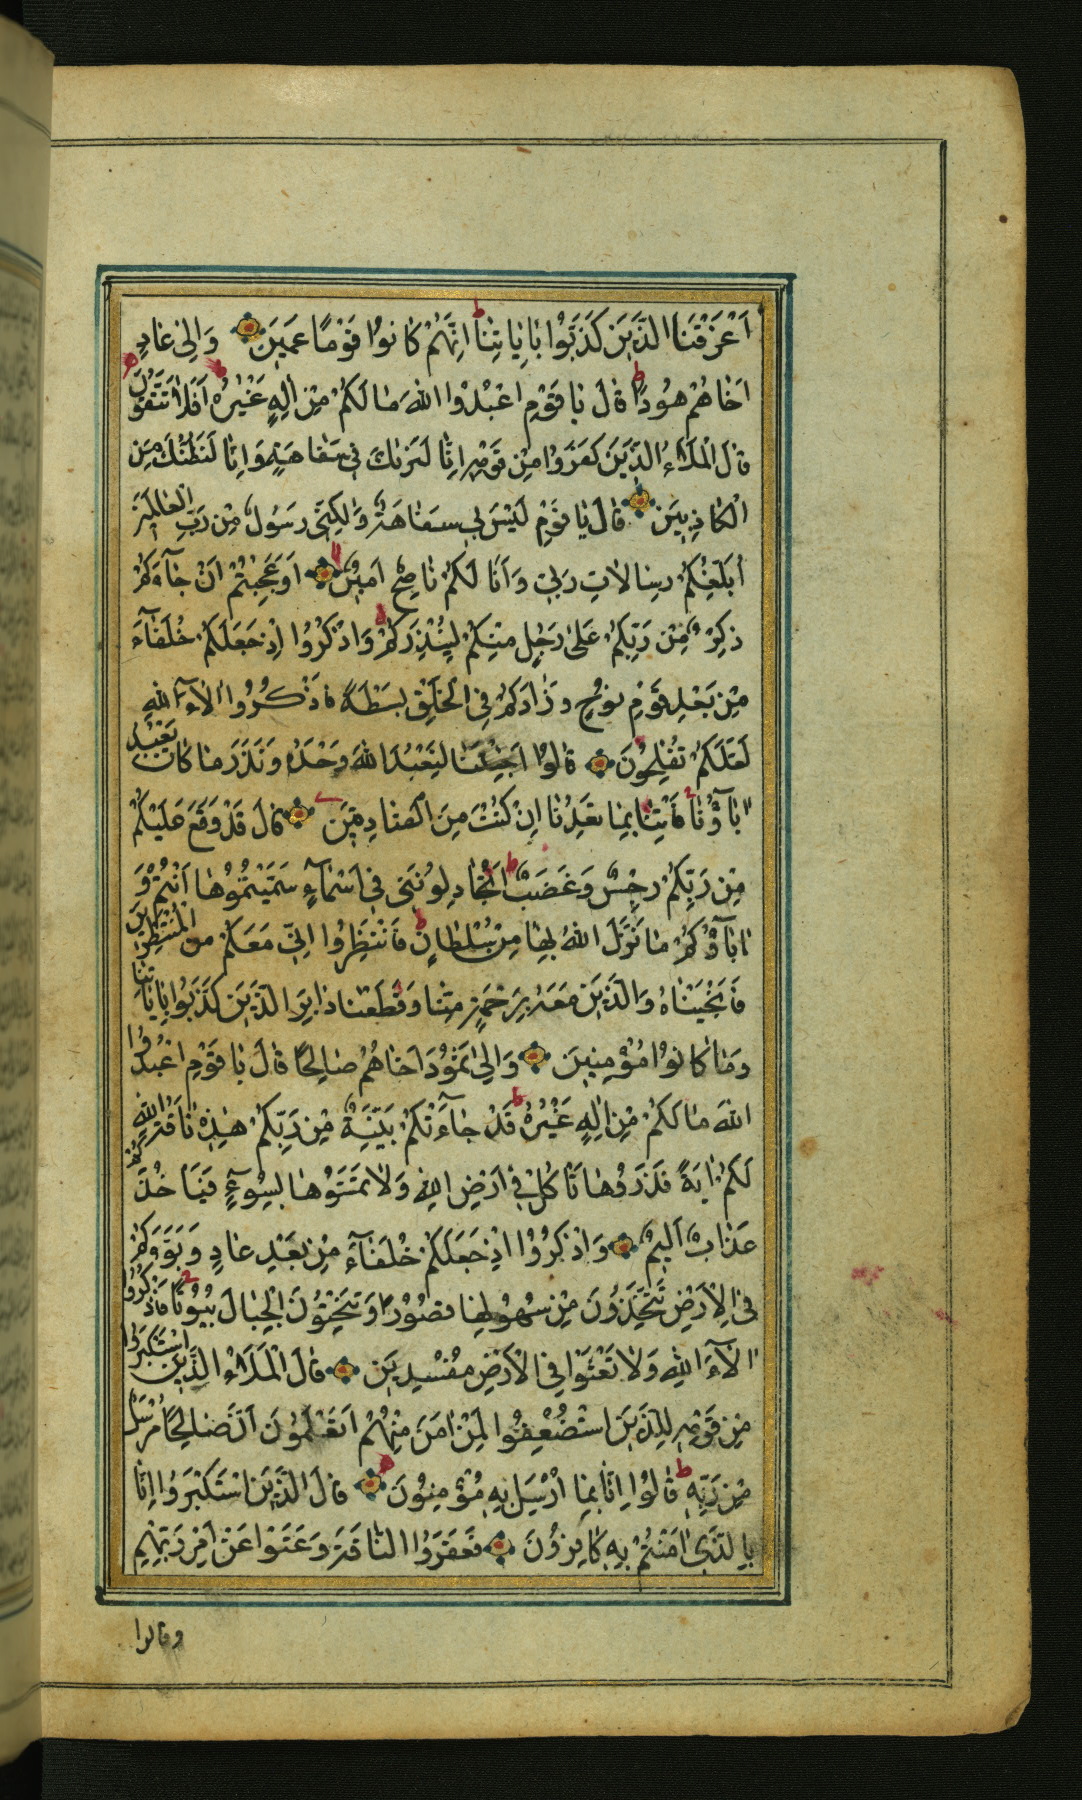 اَغْرَقْنَا الَّذِينَ كَذَّبُوا بِاٰيَاتِنَا اِنَّهُمْ كَانُوا قَوْمًا عَمِينَ وَاِلٰى عَادٍ
اَخَاهُمْ هُودًا قَالَ يَا قَوْمِ اعْبُدُوا اللهَ مَا لَكُمْ مِنْ اِلٰهٍ غَيْرُهُ اَفَلَا تَتَّقُونَ
قَالَ الْمَلَاُ الَّذِينَ كَفَرُوا مِنْ قَوْمِهِ اِنَّا لَنَرٰيكَ فِي سَفَاهَةٍ وَاِنَّا لَنَظُنُّكَ مِنَ
الْكَاذِبِينَ قَالَ يَا قَوْمِ لَيْسَ بِي سَفَاهَةٌ وَلٰكِنِّي رَسُولٌ مِنْ رَبِّ الْعَالَمِينَ
اُبَلِّغُكُمْ رِسَالَاتِ رَبِّي وَاَنَا لَكُمْ نَاصِحٌ اَمِينٌ اَوَعَجِبْتُمْ اَنْ جَآءَكُمْ
ذِكْرٌ مِنْ رَبِّكُمْ عَلٰى رَجُلٍ مِنْكُمْ لِيُنْذِرَكُمْ وَاذْكُرُوا اِذْ جَعَلَكُمْ خُلَفَآءَ
مِنْ بَعْدِ قَوْمِ نُوحٍ وَزَادَكُمْ فِي الْخَلْقِ بَسْطَةً فَاذْكُرُوا اٰلَآءَ اللهِ
لَعَلَّكُمْ تُفْلِحُونَ قَالُوا اَجِئْتَنَا لِنَعْبُدَ اللهَ وَحْدَهُ وَنَذَرَ مَا كَانَ يَعْبُدُ
اٰبَآؤُنَا فَأْتِنَا بِمَا تَعِدُنَا اِنْ كُنْتَ مِنَ الصَّادِقِينَ قَالَ قَدْ وَقَعَ عَلَيْكُمْ
مِنْ رَبِّكُمْ رِجْسٌ وَغَضَبٌ اَتُجَادِلُونَنِي فِي اَسْمَآءٍ سَمَّيْتُمُوهَا اَنْتُمْ وَ
اٰبَآؤُكُمْ مَا نَزَّلَ اللهُ بِهَا مِنْ سُلْطَانٍ فَانْتَظِرُوا اِنِّي مَعَكُمْ مِنَ الْمُنْتَظِرِينَ
فَاَنْجَيْنَاهُ وَالَّذِينَ مَعَهُ بِرَحْمَةٍ مِنَّا وَقَطَعْنَا دَابِرَ الَّذِينَ كَذَّبُوا بِاٰيَاتِنَا
وَمَا كَانُوا مُؤْمِنِينَ وَاِلٰى ثَمُودَ اَخَاهُمْ صَالِحًا قَالَ يَا قَوْمِ اعْبُدُوا
اللهَ مَا لَكُمْ مِنْ اِلٰهٍ غَيْرُهُ قَدْ جَآءَتْكُمْ بَيِّنَةٌ مِنْ رَبِّكُمْ هٰذِهِ نَاقَةُ اللهِ
لَكُمْ اٰيَةً فَذَرُوهَا تَأْكُلْ فِي اَرْضِ اللهِ وَلَا تَمَسُّوهَا بِسُوٓءٍ فَيَأْخُذَكُمْ
عَذَابٌ اَلِيمٌ وَاذْكُرُوا اِذْ جَعَلَكُمْ خُلَفَآءَ مِنْ بَعْدِ عَادٍ وَبَوَّءَكُمْ
فِي الْاَرْضِ تَتَّخِذُونَ مِنْ سُهُولِهَا قُصُورًا وَتَنْحِتُونَ الْجِبَالَ بُيُوتًا فَاذْكُرُوا
اٰلَآءَ اللهِ وَلَا تَعْثَوْا فِي الْاَرْضِ مُفْسِدِينَ قَالَ الْمَلَاُ الَّذِينَ اسْتَكْبَرُوا
مِنْ قَوْمِهِ لِلَّذِينَ اسْتُضْعِفُوا لِمَنْ اٰمَنَ مِنْهُمْ اَتَعْلَمُونَ اَنَّ صَالِحًا مُرْسَلٌ
مِنْ رَبِّهِ قَالُوا اِنَّا بِمَا اُرْسِلَ بِهِ مُؤْمِنُونَ قَالَ الَّذِينَ اسْتَكْبَرُوا اِنَّا
بِالَّذِي اٰمَنْتُمْ بِهِ كَافِرُونَ فَعَقَرُوا النَّاقَةَ وَعَتَوْا عَنْ اَمْرِ رَبِّهِمْ
وقالوا